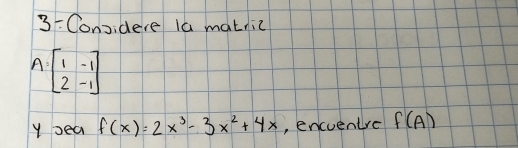 3-Considere la matriz
A: [1 -1
2 -1]
y sea f(x): 2x³-3x²+4x, encuentre f(A)